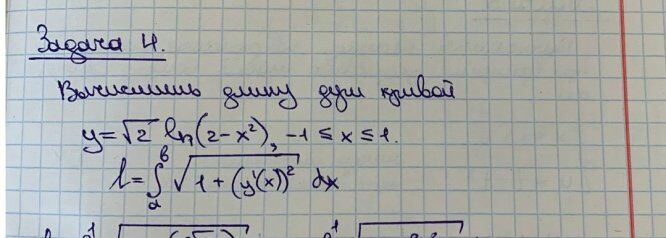 Задача 4.
Вычислить длину дуги кривой
y=√2 ln(2-x²), -1≤x≤1.
l=∫ₐᵇ √(1+(y'(x))²) dx